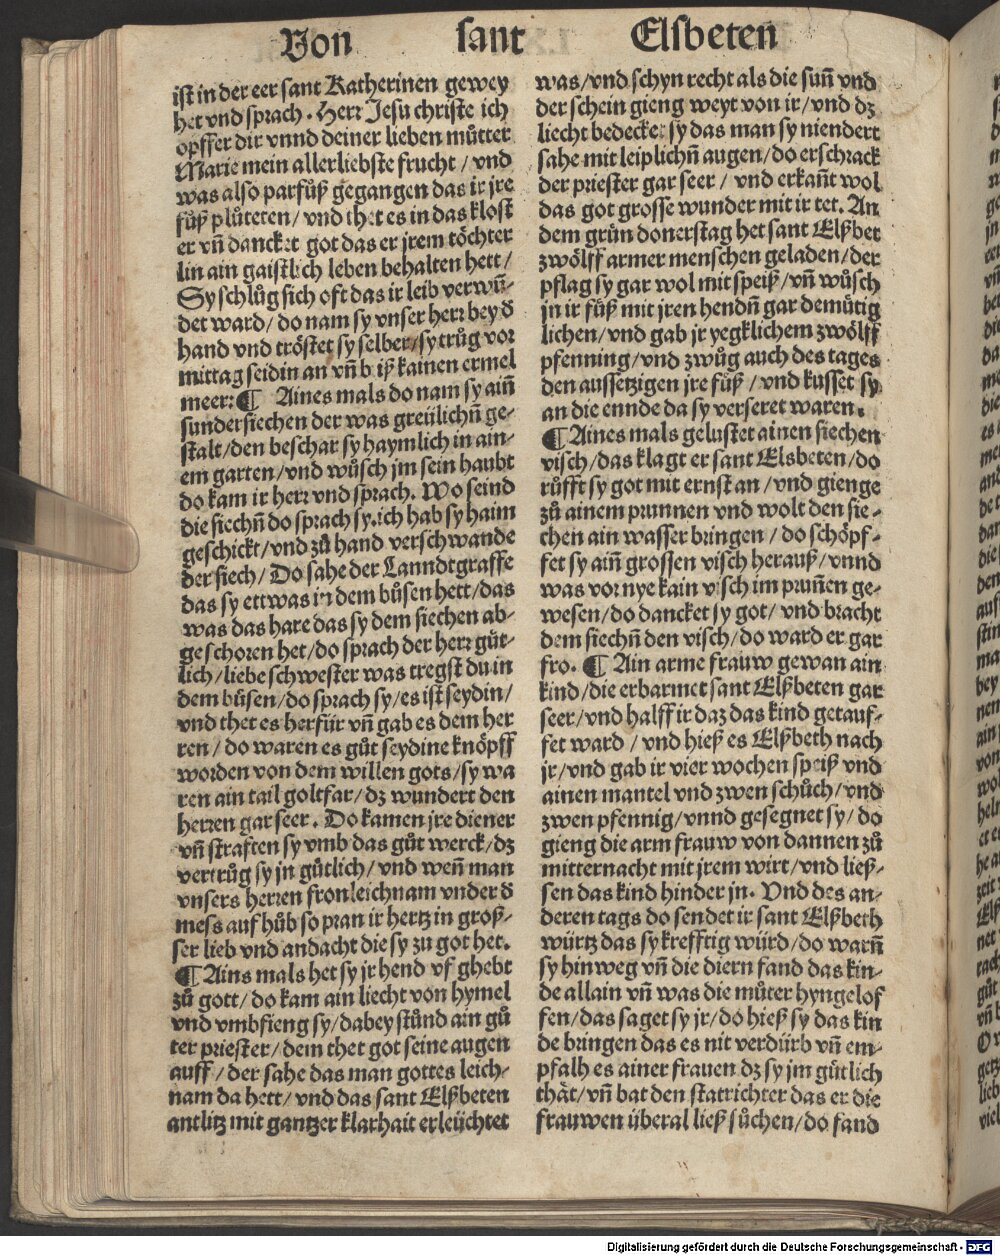 Von sant Elsbeten
ist in der eer sant Katherinen gewey
het vnd sprach. Herr Jesu christe ich
opffer dir vnnd deiner lieben můtter
Marie mein allerliebste frucht / vnd
was also parfůß gegangen das ir jre
fůß plůteten / vnd thet es in das klost
er vn̄ dancket got das er jrem töchter
lin ain gaistlich leben behalten hett /
Sy schlůg sich oft das ir leib verwū-
det ward / do nam sy vnser herr bey d̕
hand vnd tröstet sy selber / sy trůg vor
mittag seidin an vn̄ biß kainen ermel
meer: ¶ Aines mals do nam sy ain̄
sundersiechen der was greülichn̄ ge-
stalt / den beschar sy haymlich in ain-
em garten / vnd wůsch jm sein haubt
do kam ir herr vnd sprach. Wo seind
die siechn̄ do sprach sy. ich hab sy haim
geschickt / vnd zů hand verschwande
der siech / Do sahe der Lanndtgraffe
das sy ettwas in dem bůsen hett / das
was das hare das sy dem siechen ab-
geschoren het / do sprach der herr güt-
lich / liebe schwester was tregst du in
dem bůsen / do sprach sy / es ist seydin /
vnd thet es herfür vn̄ gab es dem her
ren / do waren es gůt seydine knöpff
worden von dem willen gots / sy wa
ren ain tail goltfar / dz wundert den
herren gar seer. Do kamen jre diener
vn̄ straften sy vmb das gůt werck / dz
vertrůg sy jn gůtlich / vnd wen̄ man
vnsers herren fronleichnam vnder d̕
mess auf hůb so pran ir hertz in groß-
ser lieb vnd andacht die sy zu got het.
¶ Ains mals het sy jr hend vf ghebt
zů gott / do kam ain liecht von hymel
vnd vmbfieng sy / dabey stůnd ain gů
ter priester / dem thet got seine augen
auff / der sahe das man gottes leich-
nam da hett / vnd das sant Elßbeten
antlitz mit gantzer klarhait erleüchtet
was / vnd schyn recht als die sun̄ vnd
der schein gieng weyt von ir / vnd dz
liecht bedecket sy das man sy niendert
sahe mit leiplichn̄ augen / do erschrack
der priester gar seer / vnd erkan̄t wol
das got grosse wunder mit ir tet. An
dem grůn donerstag het sant Elßbet
zwölff armer menschen geladen / der
pflag sy gar wol mit speiß / vn̄ wůsch
jn ir fůß mit jren hendn̄ gar demůtig
lichen / vnd gab jr yegklichem zwölff
pfenning / vnd zwůg auch des tages
den aussetzigen jre fůß / vnd kusset sy
an die ennde da sy verseret waren.
¶ Aines mals gelustet ainen siechen
visch / das klagt er sant Elsbeten / do
růfft sy got mit ernst an / vnd gienge
zů ainem prunnen vnd wolt den sie-
chen ain wasser bringen / do schöpf-
fet sy ain̄ grossen visch herauß / vnnd
was vor nye kain visch im prun̄en ge-
wesen / do dancket sy got / vnd bracht
dem siechn̄ den visch / do ward er gar
fro. ¶ Ain arme frauw gewan ain
kind / die erbarmet sant Elßbeten gar
seer / vnd halff ir daz das kind getauf-
fet ward / vnd hieß es Elßbeth nach
jr / vnd gab ir vier wochen speiß vnd
ainen mantel vnd zwen schůch / vnd
zwen pfennig / vnnd gesegnet sy / do
gieng die arm frauw von dannen zů
mitternacht mit jrem wirt / vnd ließ-
sen das kind hinder jn. Vnd des an-
deren tags do sendet ir sant Elßbeth
würtz das sy krefftig würd / do warn̄
sy hinweg vn̄ die diern fand das kin-
de allain vn̄ was die můter hyngelof
fen / das saget sy jr / do hieß sy das kin
de bringen das es nit verdürb vn̄ em-
pfalh es ainer frauen dz sy jm gůtlich
thät / vn̄ bat den statrichter das er die
frauwen überal ließ sůchen / do fand
Digitalisierung gefördert durch die Deutsche Forschungsgemeinschaft - DFG